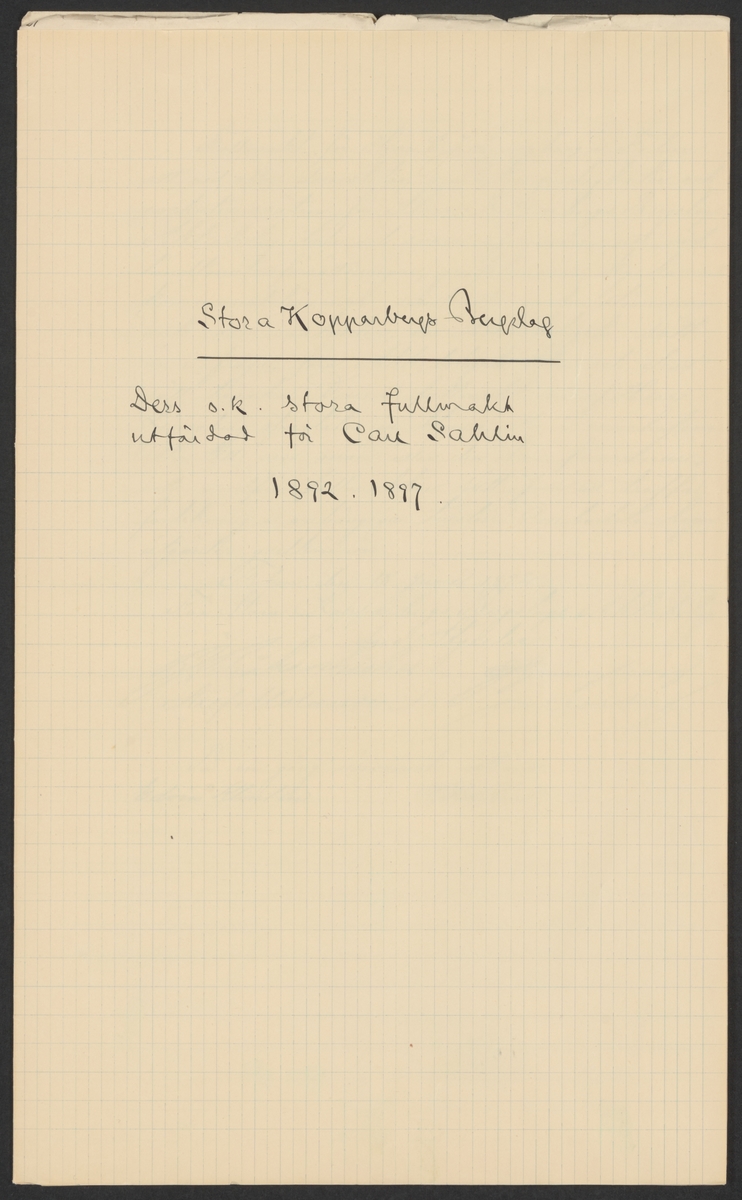 Stora Kopparbergs Bergslag
Dess s.k. stora fullmakt
utfärdad för Carl Sahlin
1892. 1897.